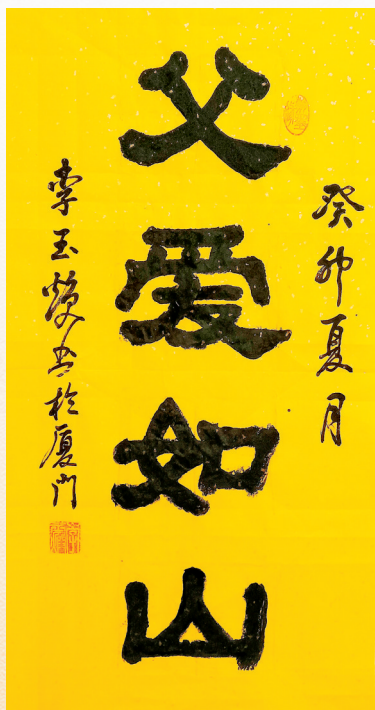 癸卯夏月
父爱如山
李玉
书于厦门